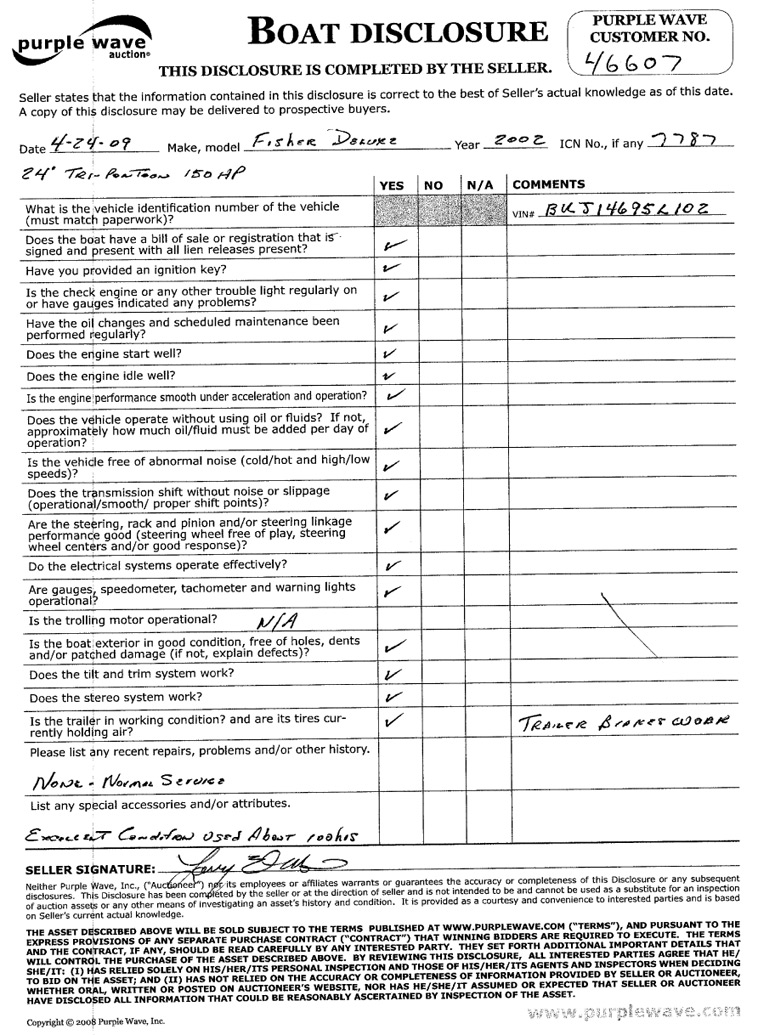 purple wave
auction®
BOAT DISCLOSURE
THIS DISCLOSURE IS COMPLETED BY THE SELLER.
PURPLE WAVE
CUSTOMER NO.
46607
Seller states that the information contained in this disclosure is correct to the best of Seller's actual knowledge as of this date.
A copy of this disclosure may be delivered to prospective buyers.
Date 4-24-09 Make, model Fisher Deluxe Year 2002 ICN No., if any 7787
24' Tri-Pontoon 150 HP
YES NO N/A COMMENTS
What is the vehicle identification number of the vehicle
(must match paperwork)?
VIN# BUJ14695L102
Does the boat have a bill of sale or registration that is
signed and present with all lien releases present? ✓
Have you provided an ignition key? ✓
Is the check engine or any other trouble light regularly on
or have gauges indicated any problems? ✓
Have the oil changes and scheduled maintenance been
performed regularly? ✓
Does the engine start well? ✓
Does the engine idle well? ✓
Is the engine performance smooth under acceleration and operation? ✓
Does the vehicle operate without using oil or fluids? If not,
approximately how much oil/fluid must be added per day of
operation? ✓
Is the vehicle free of abnormal noise (cold/hot and high/low
speeds)? ✓
Does the transmission shift without noise or slippage
(operational/smooth/ proper shift points)? ✓
Are the steering, rack and pinion and/or steering linkage
performance good (steering wheel free of play, steering
wheel centers and/or good response)? ✓
Do the electrical systems operate effectively? ✓
Are gauges, speedometer, tachometer and warning lights
operational? ✓
Is the trolling motor operational? N/A
Is the boat exterior in good condition, free of holes, dents
and/or patched damage (if not, explain defects)? ✓
Does the tilt and trim system work? ✓
Does the stereo system work? ✓
Is the trailer in working condition? and are its tires cur-
rently holding air? ✓ Trailer Brakes Work
Please list any recent repairs, problems and/or other history.
None - Normal Service
List any special accessories and/or attributes.
Excellent Condition Used About 100 hrs
SELLER SIGNATURE:
Neither Purple Wave, Inc., ("Auctioneer") nor its employees or affiliates warrants or guarantees the accuracy or completeness of this Disclosure or any subsequent
disclosures. This Disclosure has been completed by the seller or at the direction of seller and is not intended to be and cannot be used as a substitute for an inspection
of auction assets or any other means of investigating an asset's history and condition. It is provided as a courtesy and convenience to interested parties and is based
on Seller's current actual knowledge.
THE ASSET DESCRIBED ABOVE WILL BE SOLD SUBJECT TO THE TERMS PUBLISHED AT WWW.PURPLEWAVE.COM ("TERMS"), AND PURSUANT TO THE
EXPRESS PROVISIONS OF ANY SEPARATE PURCHASE CONTRACT ("CONTRACT") THAT WINNING BIDDERS ARE REQUIRED TO EXECUTE. THE TERMS
AND THE CONTRACT, IF ANY, SHOULD BE READ CAREFULLY BY ANY INTERESTED PARTY. THEY SET FORTH ADDITIONAL IMPORTANT DETAILS THAT
WILL CONTROL THE PURCHASE OF THE ASSET DESCRIBED ABOVE. BY REVIEWING THIS DISCLOSURE, ALL INTERESTED PARTIES AGREE THAT HE/
SHE/IT: (I) HAS RELIED SOLELY ON HIS/HER/ITS PERSONAL INSPECTION AND THOSE OF HIS/HER/ITS AGENTS AND INSPECTORS WHEN DECIDING
TO BID ON THE ASSET; AND (II) HAS NOT RELIED ON THE ACCURACY OR COMPLETENESS OF INFORMATION PROVIDED BY SELLER OR AUCTIONEER,
WHETHER ORAL, WRITTEN OR POSTED ON AUCTIONEER'S WEBSITE, NOR HAS HE/SHE/IT ASSUMED OR EXPECTED THAT SELLER OR AUCTIONEER
HAVE DISCLOSED ALL INFORMATION THAT COULD BE REASONABLY ASCERTAINED BY INSPECTION OF THE ASSET.
Copyright © 2008 Purple Wave, Inc.
www.purplewave.com